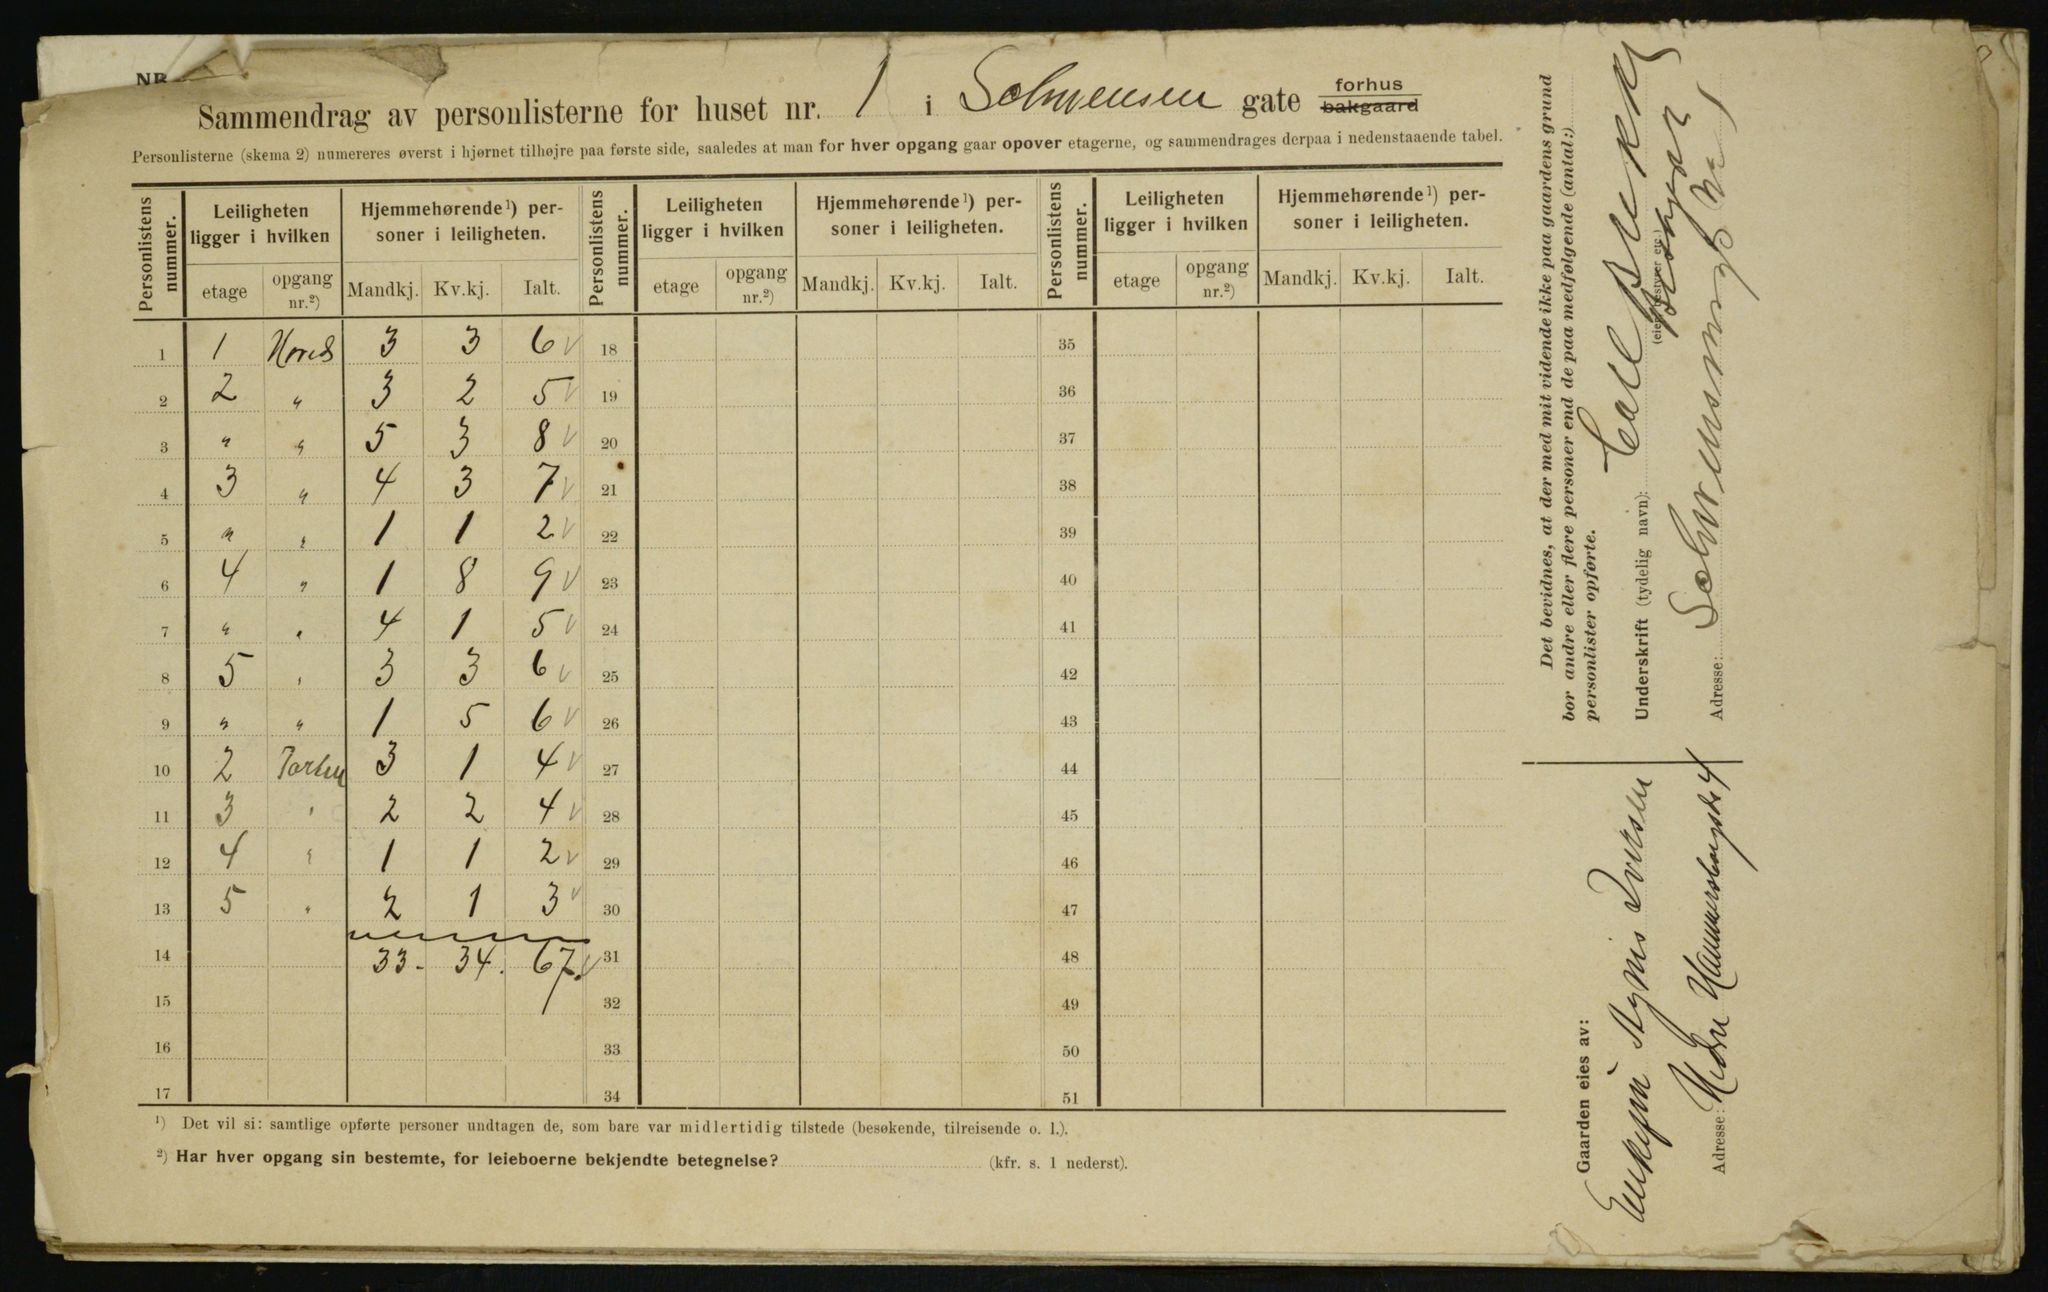 Sammendrag av personlisterne for huset nr. 1 i Schwensen gate forhus bakgaard
Personlisterne (skema 2) numereres øverst i hjørnet tilhøjre paa første side, saaledes at man for hver opgang gaar opover etagerne, og sammendrages derpaa i nedenstaaende tabel.
Personlistens nummer. Leiligheten ligger i hvilken Hjemmehørende¹) personer i leiligheten. Personlistens nummer. Leiligheten ligger i hvilken Hjemmehørende¹) personer i leiligheten. Personlistens nummer. Leiligheten ligger i hvilken Hjemmehørende¹) personer i leiligheten.
etage opgang nr.²) Mandkj. Kv.kj. Ialt. etage opgang nr.²) Mandkj. Kv.kj. Ialt. etage opgang nr.²) Mandkj. Kv.kj. Ialt.
1 1 3 3 6 18 35
2 2 " 3 2 5 19 36
3 " " 5 3 8 20 37
4 3 " 4 3 7 21 38
5 " " 1 1 2 22 39
6 4 " 1 8 9 23 40
7 " " 4 1 5 24 41
8 5 " 3 3 6 25 42
9 " " 1 5 6 26 43
10 2 3 1 4 27 44
11 3 " 2 2 4 28 45
12 4 " 1 1 2 29 46
13 5 " 2 1 3 30 47
14 33 - 34. 67. 31 48
15 32 49
16 33 50
17 34 51
¹) Det vil si: samtlige opførte personer undtagen de, som bare var midlertidig tilstede (besøkende, tilreisende o. l.).
²) Har hver opgang sin bestemte, for leieboerne bekjendte betegnelse? (kfr. s. 1 nederst).
Det bevidnes, at der med mit vidende ikke paa gaardens grund
bor andre eller flere personer end de paa medfølgende (antal:)
personlister opførte.
Underskrift (tydelig navn): Carl
(eier, bestyrer etc.) Bestyrer
Adresse: Schwensensgt No 1
Gaarden eies av:
Enkefru Agnes Iversen
Adresse: Nedre Hammersborgsgt 4